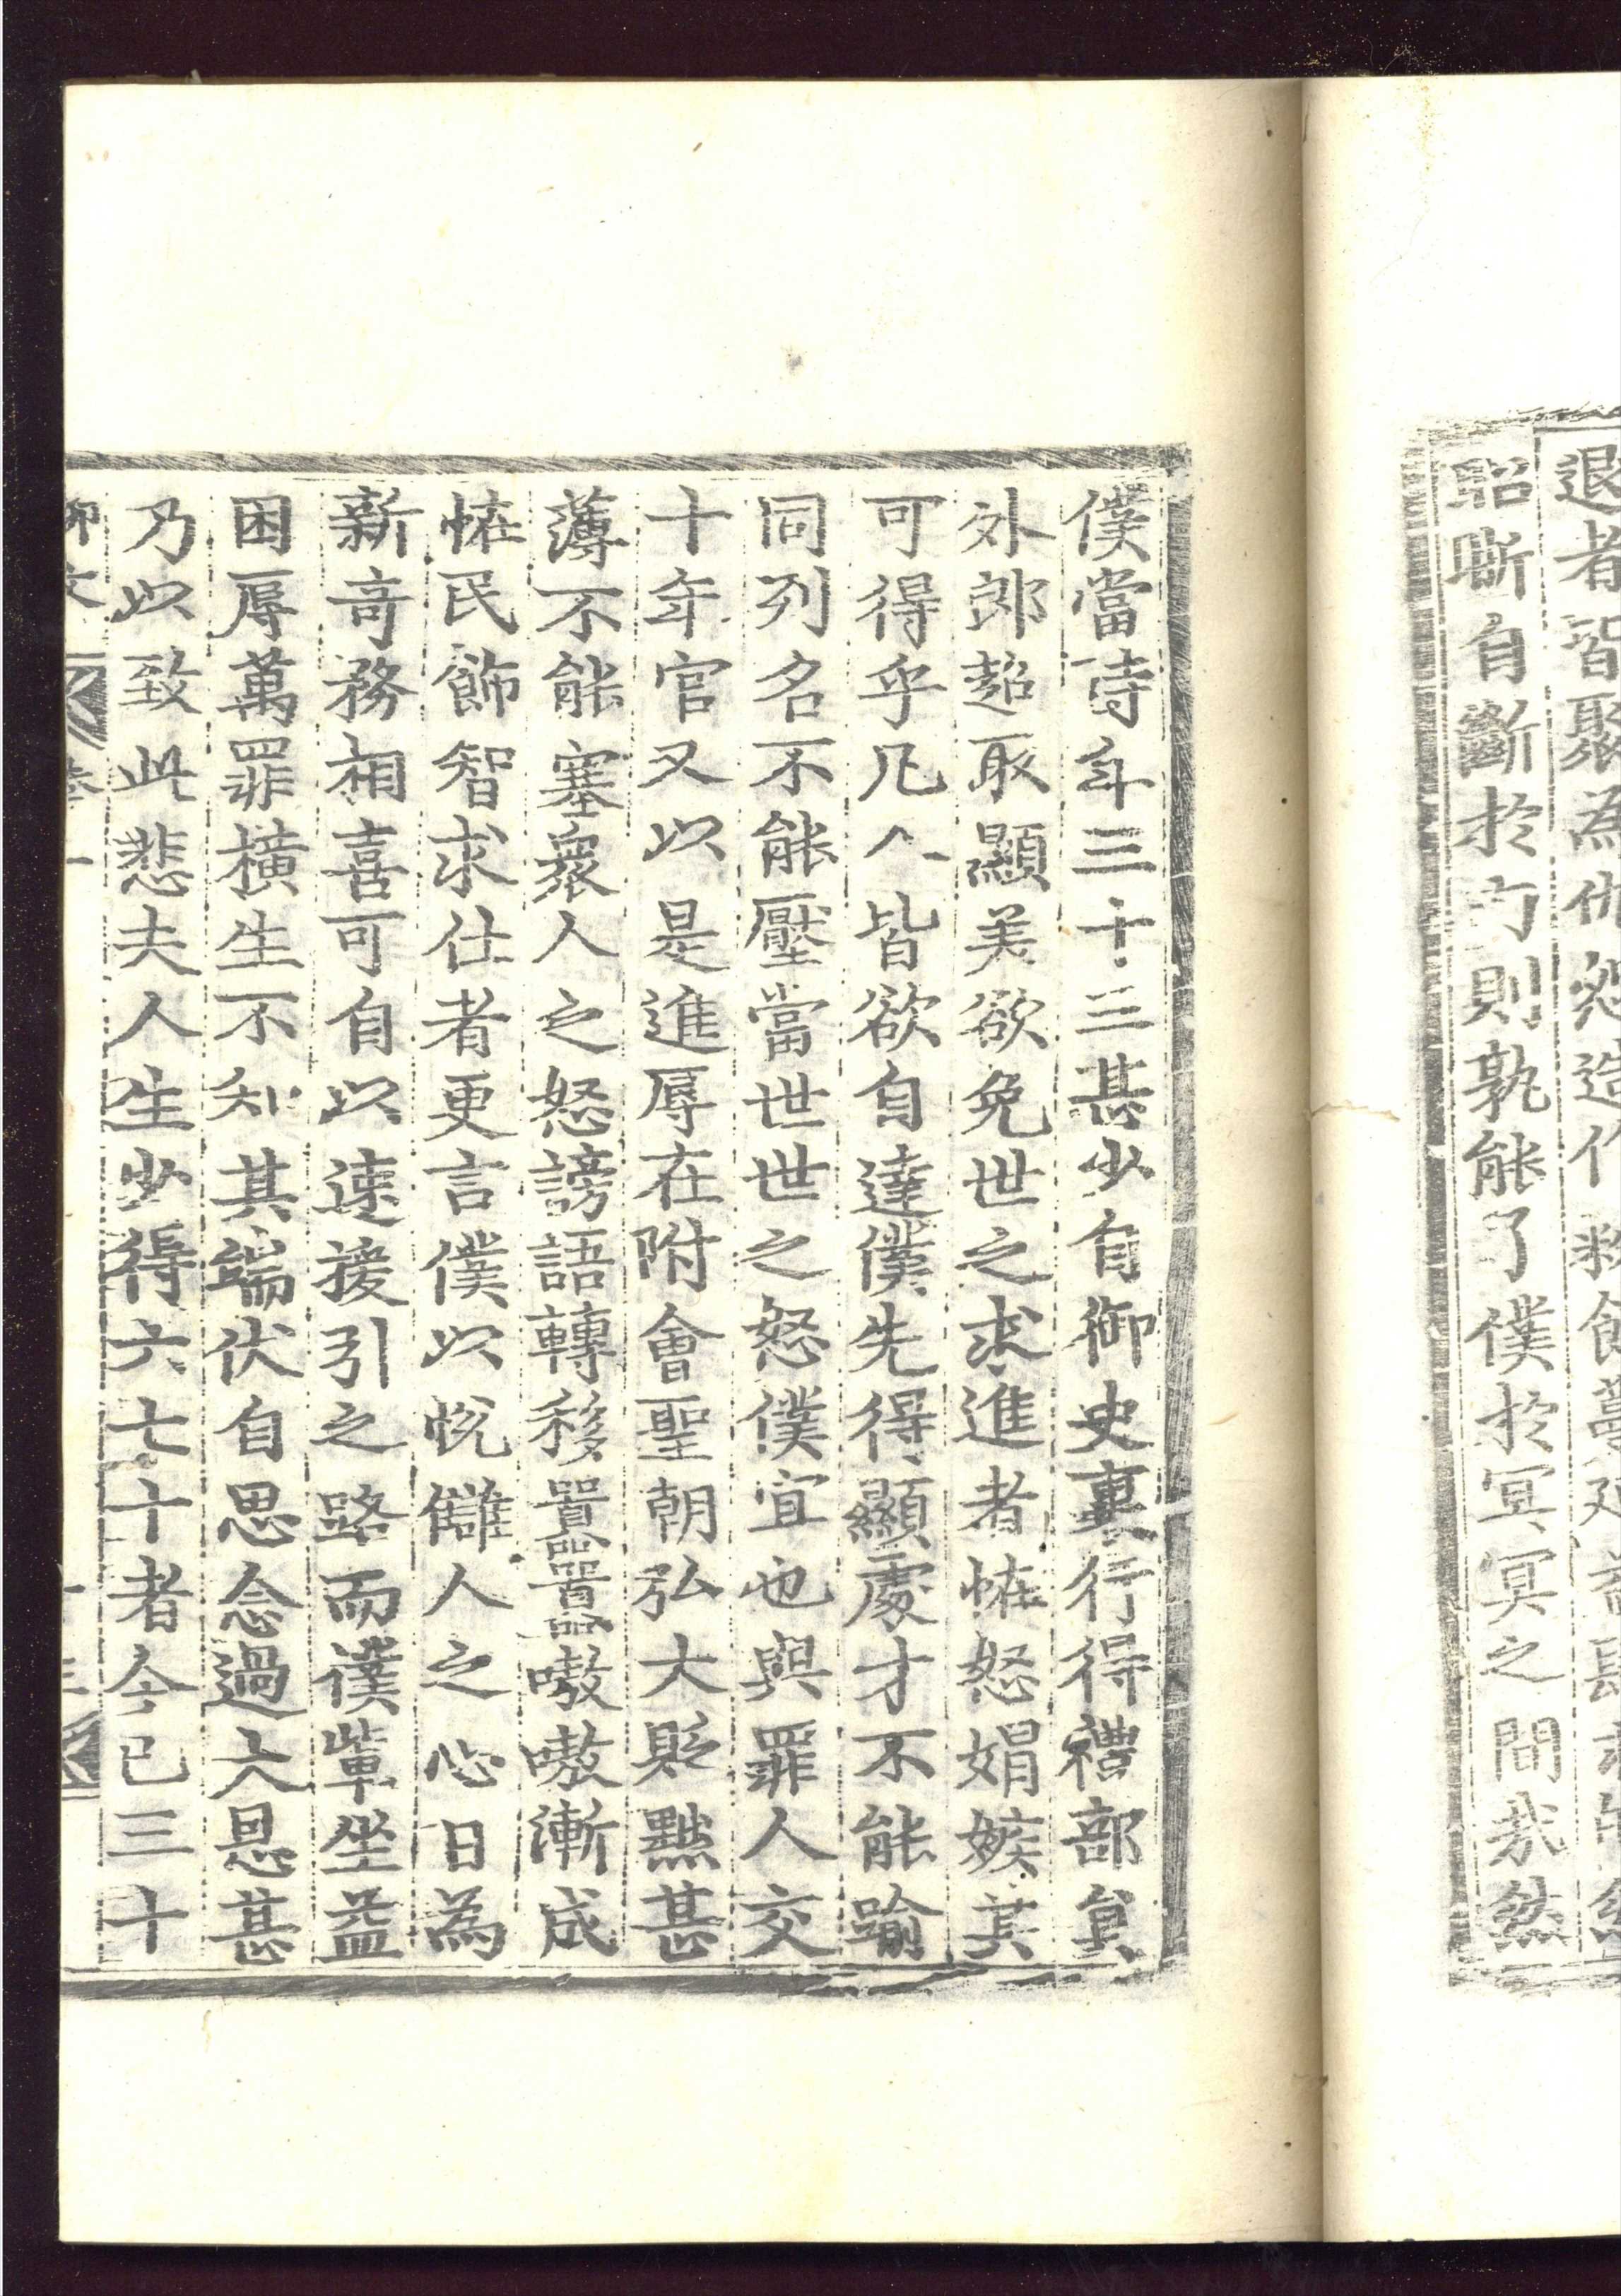 退者皆聚為仇怨造作粉飾蔓延
昭晰自斷於內則孰能了僕於冥冥之間哉然
僕當時年三十三甚少自御史裏行得禮部員
外郎超取顯美欲免世之求進者恠怒媢嫉其
可得乎凡人皆欲自達僕先得顯處才不能踰
同列名不能壓當世世之怒僕宜也與罪人交
十年官又以是進辱在附會聖朝弘大貶黜甚
薄不能塞衆人之怒謗語轉移囂囂嗷嗷漸成
恠民飾智求仕者更言僕以悅讎人之心日為
新奇務相喜可自以速援引之路而僕輩坐益
困辱萬罪橫生不知其端伏自思念過大恩甚
乃以致此悲夫人生少得六七十者今已三十